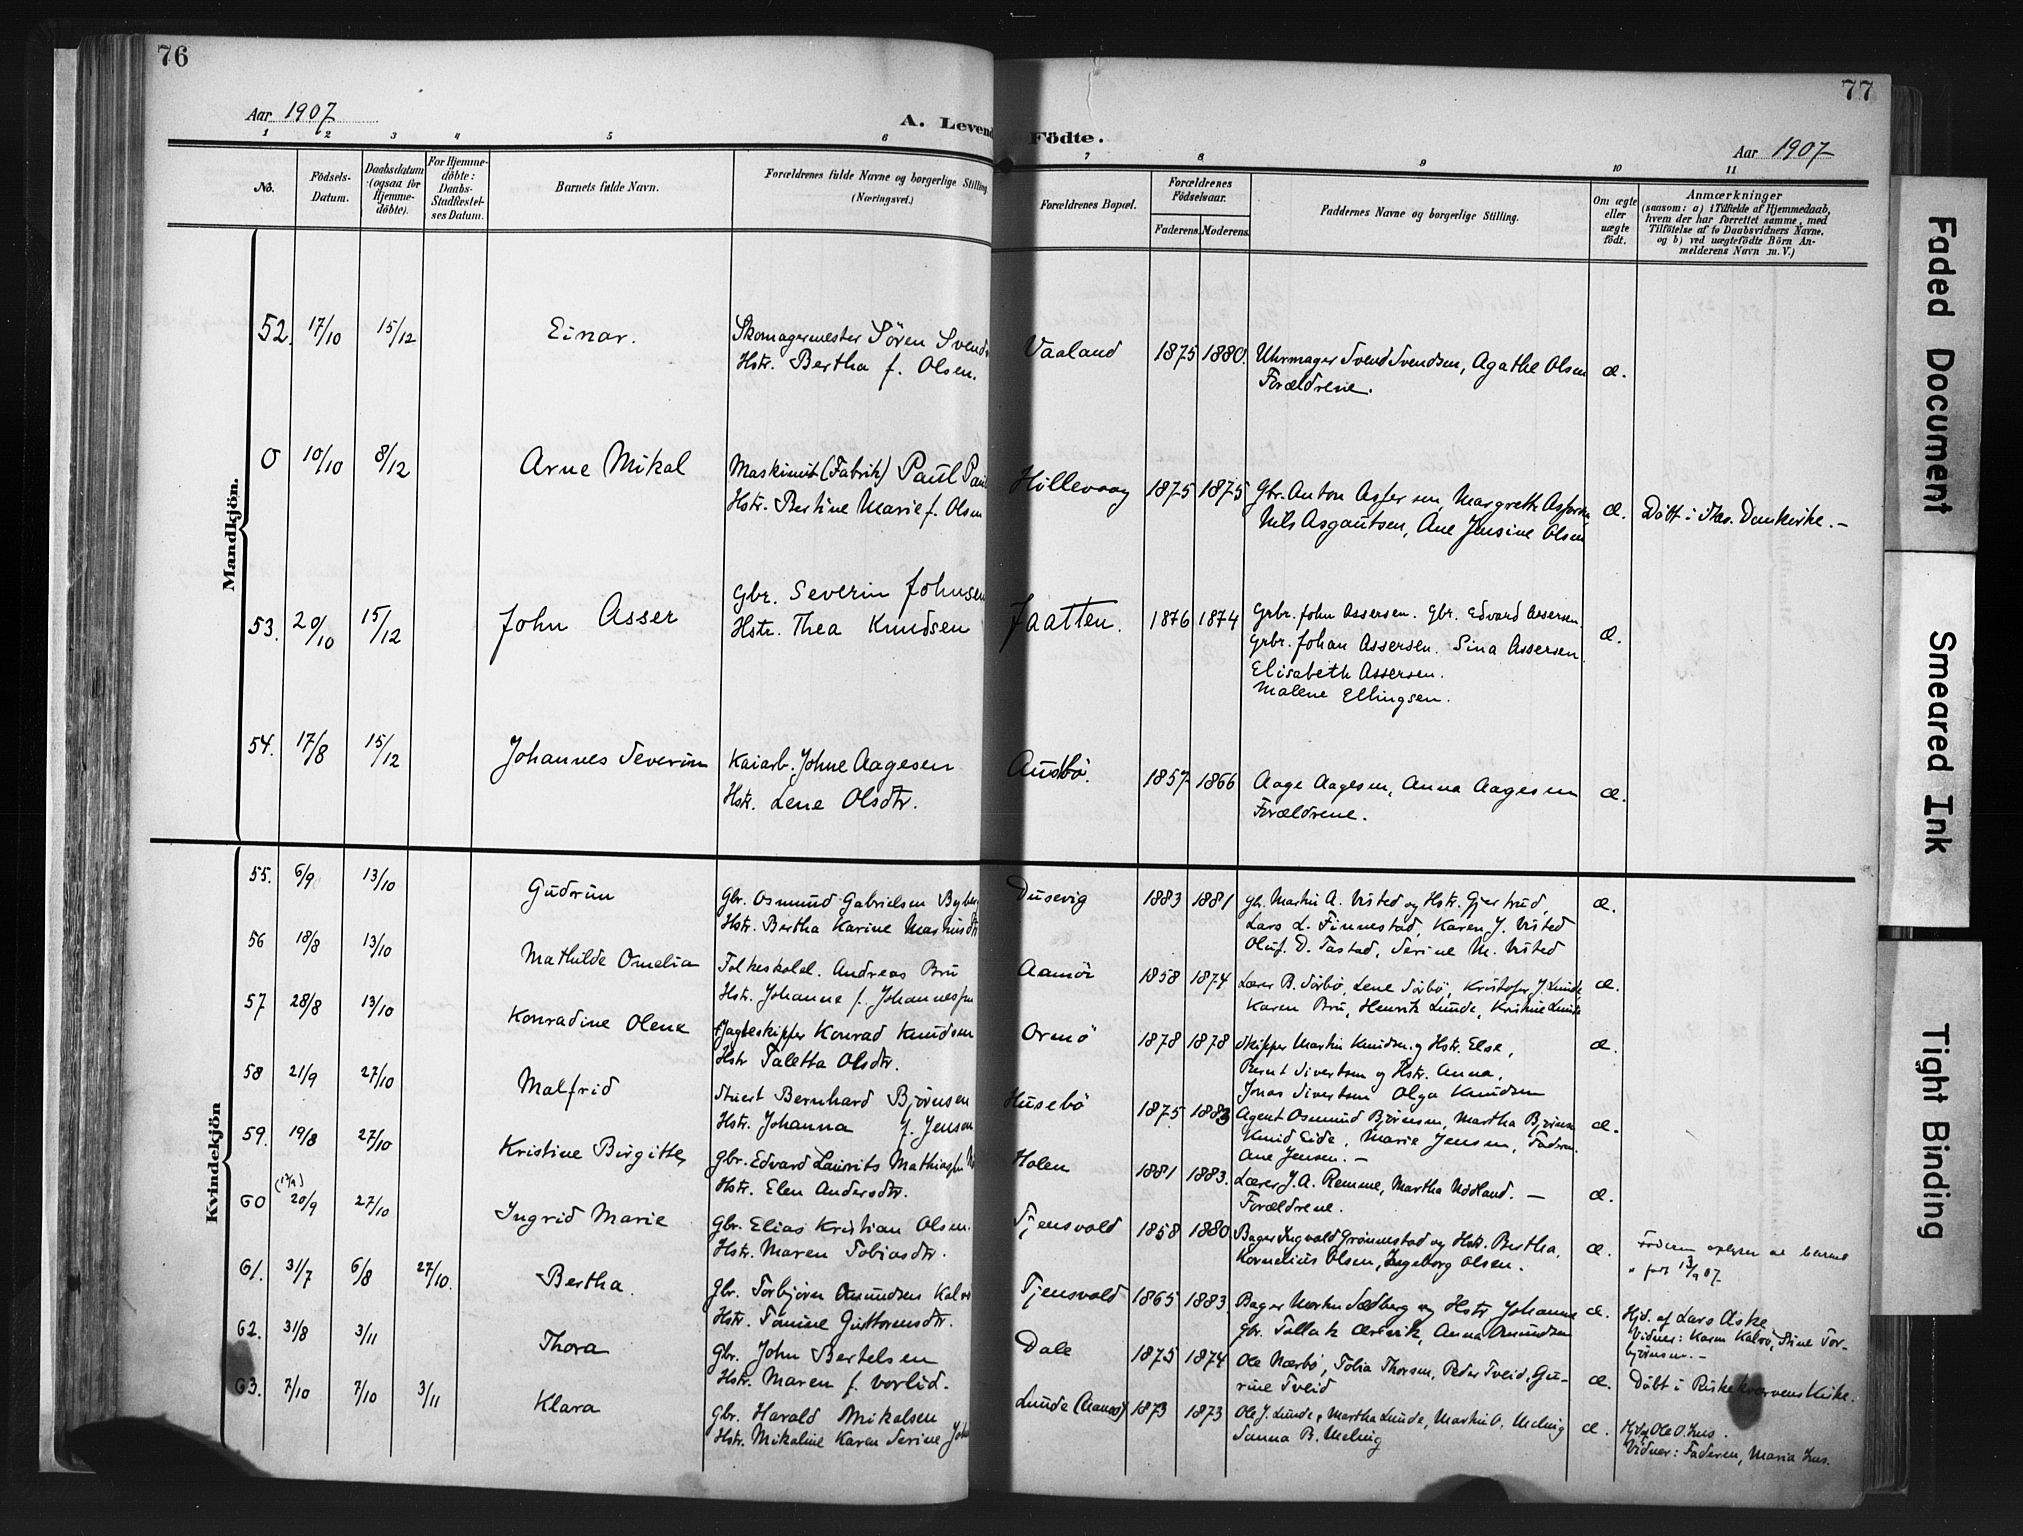 76
Aar 1907.
A. Levend
1 2 3 4 5 6
No.
Födsels-
Datum.
Daabsdatum
(ogsaa for
Hjemme-
döbte).
For Hjemme-
döbte:
Daabs-
Stadfæstel-
ses Datum.
Barnets fulde Navn.
Forældrenes fulde Navne og borgerlige Stilling
(Næringsvei.)
Mandkjön.
52. 17/10 15/12 Einar. Skomagermester Sören Svends
Hstr. Bertha f. Olsen.
0 10/10 8/12 Arne Mikal Maskinist (Fabrik) Paul
Hstr. Bertine Marie f. Olsen
53. 20/10 15/12 John Asser Gbr. Severin Johnsen
Hstr. Thea Knudsen
54. 17/8 15/12 Johannes Severin Kaiarb. Johne Aagesen
Hstr. Lene Olsdtr.
Kvindekjön
55. 6/9 13/10 Gudrun Gbr. Osmund Gabrielsen
Hstr. Bertha Karine
56 18/8 13/10 Mathilde Omelia Folkeskolel. Andreas Bru
Hstr. Johanne f. Johannessen
57 28/8 13/10 Konradine Olene Jagteskipper Konrad Knudsen
Hstr Taletta Olsdtr.
58 21/9 27/10 Malfrid Stuert Bernhard Björnsen
Hstr. Johanna f. Jensen
59. 19/8 27/10 Kristine Birgitte Gbr. Edvard Laurits
Hstr. Elen Andersdtr.
60 20/9 27/10 Ingrid Marie Gbr. Elias Kristian Olsen.
Hstr. Maren Tobiasdtr.
61. 31/7 6/8 27/10. Bertha. Gbr. Torbjörn Osmundsen
Hstr. Tomine Guttormsdtr.
62. 31/8 3/11 Thora Gbr. John Bertelsen
Hstr. Maren f. Vorlid.
63. 7/10 7/10 3/11 Klara Gbr. Harald Mikalsen
Hstr. Mikaline Karen Serine
77
Födte.
Aar 1907
7 8 9 10 11
Forældrenes Bopæl.
Forældrenes
Födselsaar.
Faderens. Moderens.
Faddernes Navne og borgerlige Stilling.
Om ægte
eller
uægte
födt.
Anmærkninger
(saasom: a) i Tilfælde af Hjemmedaab,
hvem der har forrettet samme, med
Tilföielse af to Daabsvidners Navne.
og b) ved uægtefödte Börn An-
melderens Navn m. V.)
Vaaland 1875 1880. Uhrmager Svend Svendsen, Agathe Olsen æ.
Forældrene.
Hillevaag 1875 1875 Gbr. Anton Margreth æ. Döbt i Domkirke. –
Nils Asgautsen, Ane Jensine Olsen
Jaatten. 1876 1874 Grbr. John Assersen. Gbr. Edvard Assersen. æ.
Grbr. Johan Assersen. Sina Assersen.
Elisabeth Assersen.
Malene Ellingsen.
Ausbö. 1857 1866 Aage Aagesen, Anna Aagesen æ.
Forældrene.
Dusevig 1883 1881 Gbr. Martin A. Visted og Hstr. Gjertrud, æ.
Lars L. Finnestad, Karen J. Visted
Oluf. D. Tastad, Serine M. Visted
Aamöi 1858 1874 Lærer B. Sörbö, Lene Sörbö, Kristofer J. Lunde, æ.
Karen Bru, Henrik Lunde, Kristine Lunde
Ormö 1878 1878 Skipper Martin Knudsen og Hstr. Else, æ.
Bernt Sivertsen og Hstr. Anna,
Jonas Sivertsen Olga Knudsen
Husebö 1875 1883 Agent Osmund Björnsen, Martha Björnsen æ.
Knud Eide, Marie Jensen, Faderen.
Ane Jensen. –
Holen 1881 1883. Lærer J. A. Remme, Martha – æ.
Forældrene.
Tjensvold 1858 1880 Bager Ingvald Grönnestad og Hstr. Bertha, æ.
Kornelius Olsen, Ingeborg Olsen.
13/9 07.
Tjensvold 1865 1883 Bager Martin Sædberg og Hstr Johanne æ. Hjd. af Lars Aske
Gbr. Tollak Anna Osmundsen Vidner: Karen Kalvö, Stine Tor-
björnsen. –
Dale 1875 1874 Ole Nærbö, Tolia Thorsen, Peder Tveid, Gu- æ. Döbt i
rine Tveid
Lunde 1873 1873 Ole J. Lunde, Martha Lunde, Martin O. Meling æ. Hjd. Ole O.
Sanna B. Meling
Vidner: Faderen, Maria
Faded Document
Smeared Ink
Tight Binding